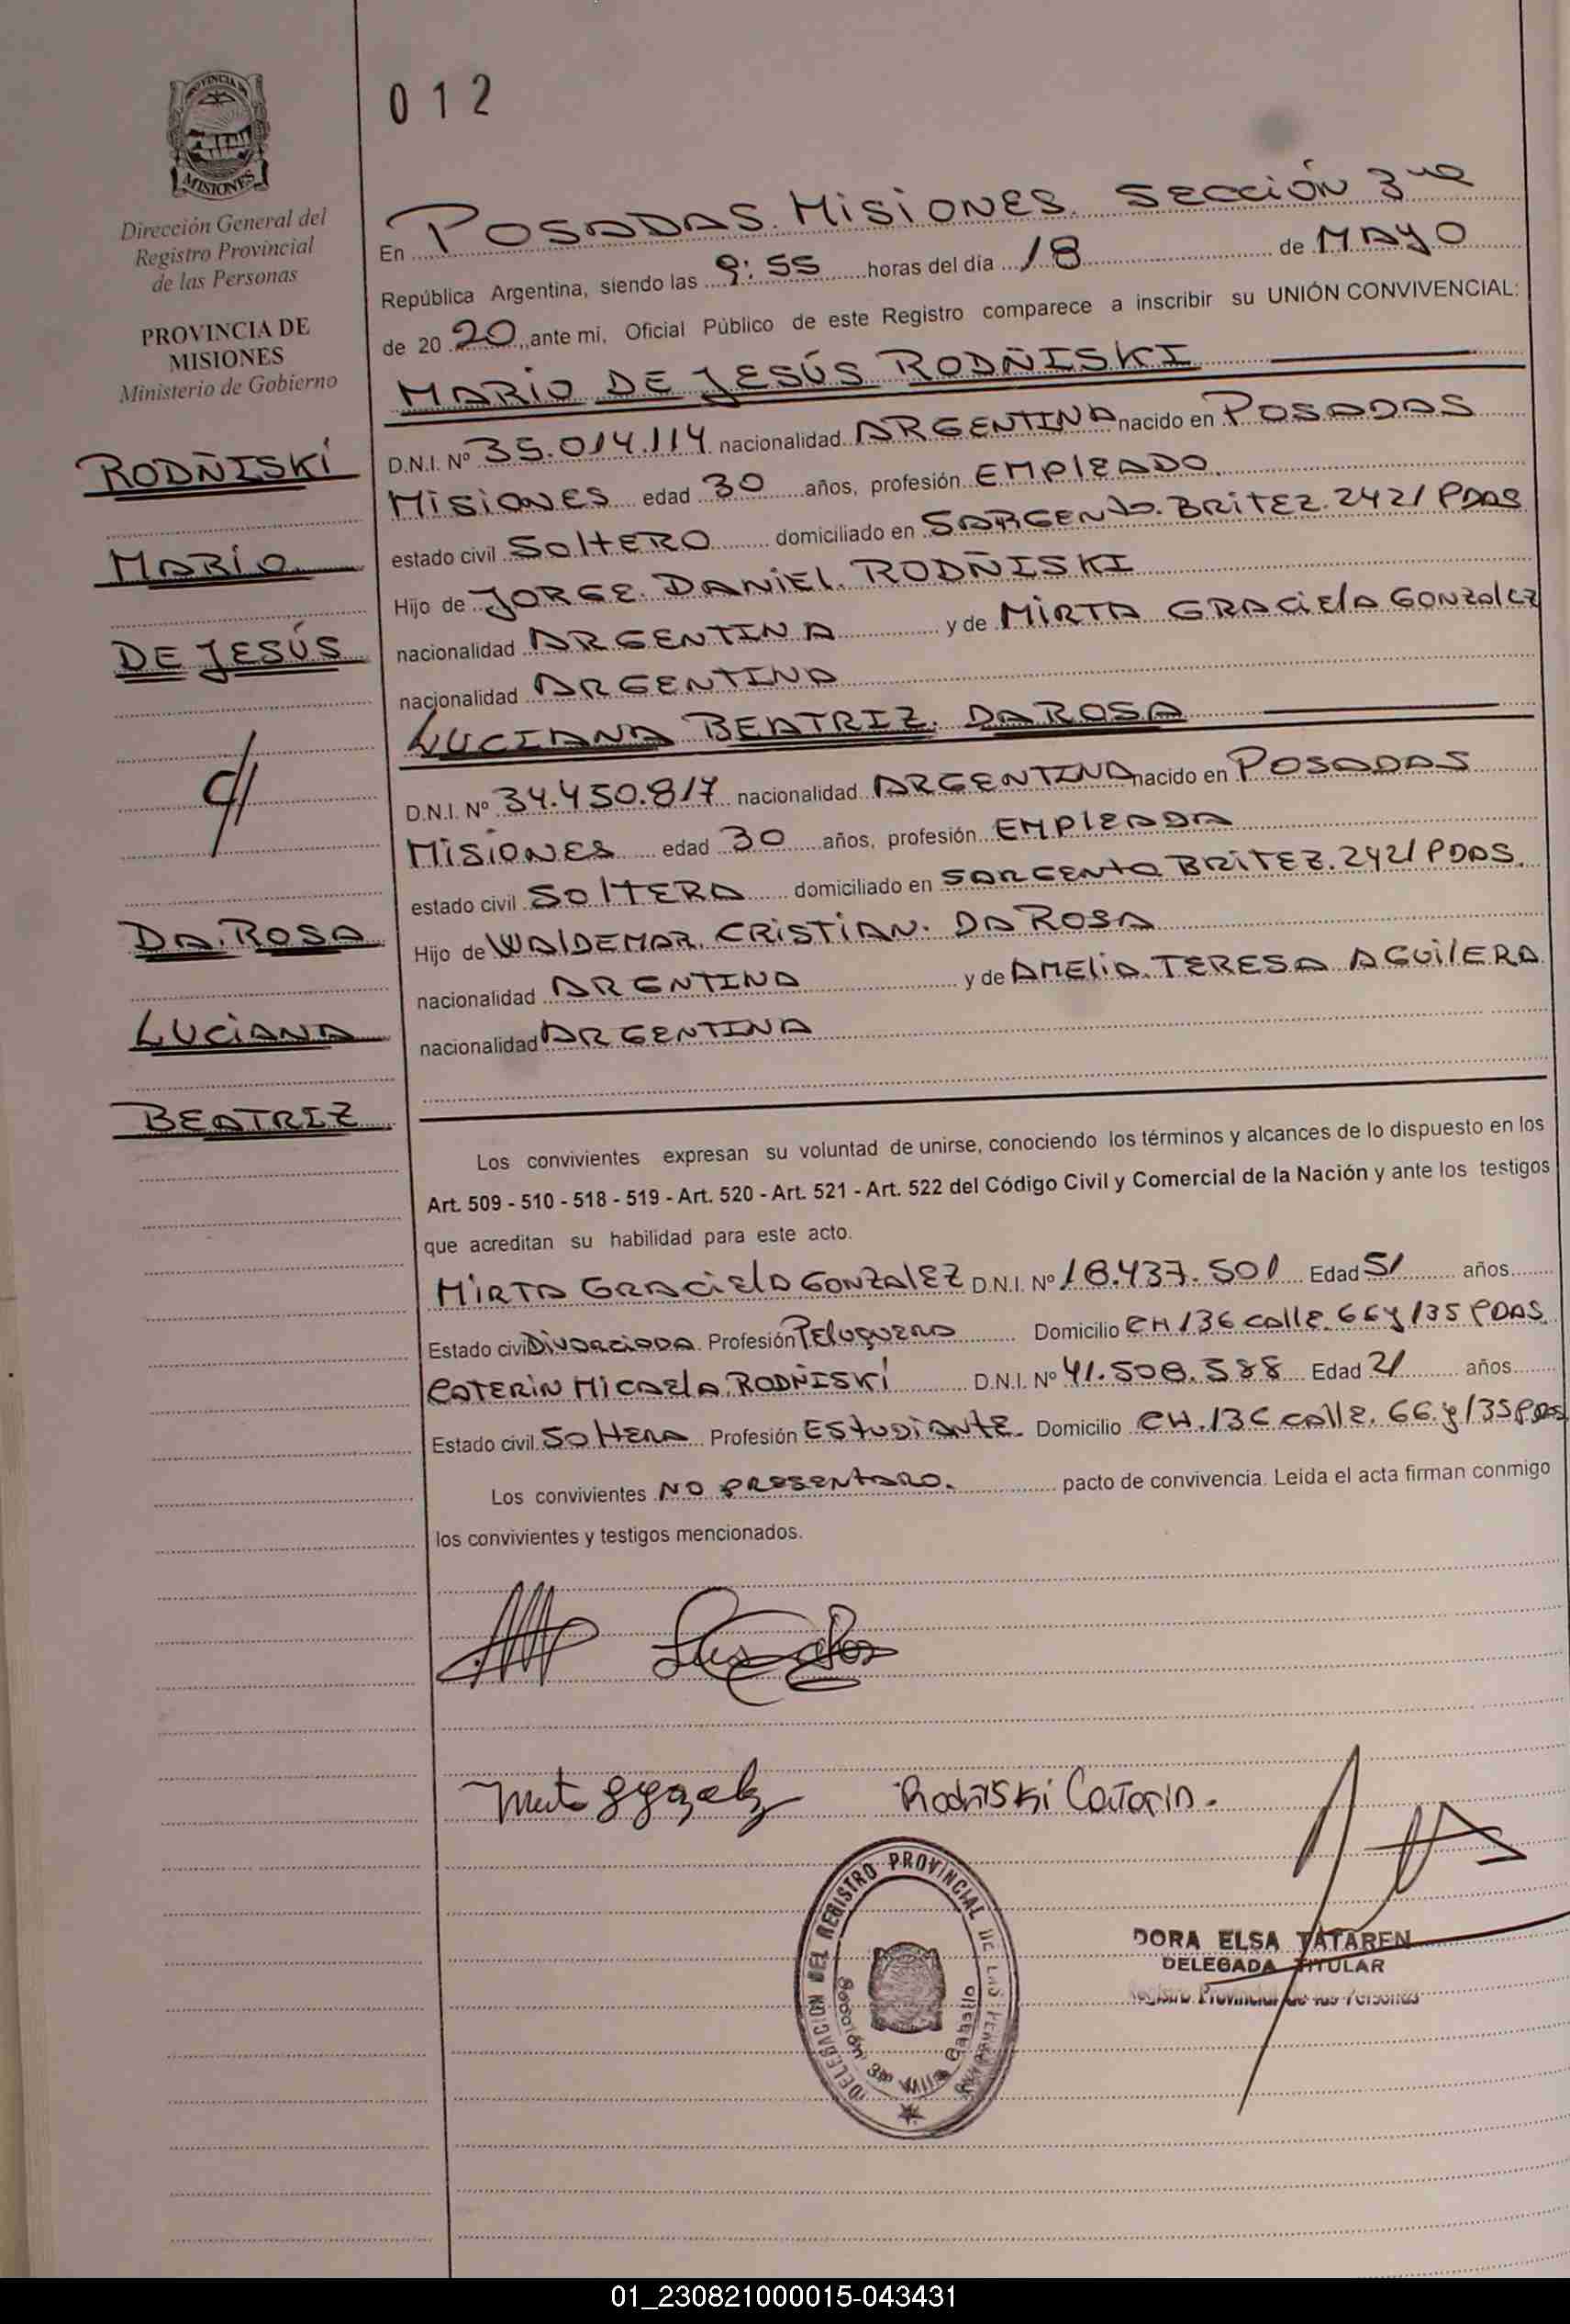 012
PROVINCIA DE
MISIONES
Dirección General del
Registro Provincial
de las Personas
PROVINCIA DE
MISIONES
Ministerio de Gobierno
RODÑISKI
MARIO
DE JESÚS
c/
DA ROSA
LUCIANA
BEATRIZ
En POSADAS. MISIONES. SECCIÓN 3ra
República Argentina, siendo las 9:55 horas del día 18 de MAYO
de 20 20 ante mi, Oficial Público de este Registro comparece a inscribir su UNIÓN CONVIVENCIAL:
MARIO DE JESÚS RODÑISKI
D.N.I. Nº 35.014.114 nacionalidad ARGENTINA nacido en POSADAS
MISIONES edad 30 años, profesión EMPLEADO.
estado civil SOLTERO domiciliado en SARGENTO. BRITEZ. 2421 PDAS
Hijo de JORGE. DANIEL. RODÑISKI
nacionalidad ARGENTINA y de MIRTA GRACIELA GONZALEZ
nacionalidad ARGENTINA
LUCIANA BEATRIZ. DA ROSA
D.N.I. Nº 34.450.817 nacionalidad ARGENTINA nacido en POSADAS
MISIONES edad 30 años, profesión EMPLEADA
estado civil SOLTERA domiciliado en SARGENTO BRITEZ. 2421 PDAS.
Hijo de WALDEMAR. CRISTIAN. DA ROSA
nacionalidad ARGNTINA y de AMELIA. TERESA AGUILERA
nacionalidad ARGENTINA
Los convivientes expresan su voluntad de unirse, conociendo los términos y alcances de lo dispuesto en los
Art. 509 - 510 - 518 - 519 - Art. 520 - Art. 521 - Art. 522 del Código Civil y Comercial de la Nación y ante los testigos
que acreditan su habilidad para este acto.
MIRTA GRACIELA GONZALEZ D.N.I. Nº 18.437.501 Edad 51 años
Estado civi DIVORCIADA. Profesión PELUQUERA Domicilio CH 136 CALLE. 66 y 135 PDAS.
CATERIN MICAELA. RODÑISKI D.N.I. Nº 41.508.588 Edad 21 años
Estado civil SOLTERA Profesión ESTUDIANTE. Domicilio CH. 136 CALLE. 66. y 135 PDAS
Los convivientes NO PRESENTARO. pacto de convivencia. Leida el acta firman conmigo
los convivientes y testigos mencionados.
Rodñiski Caterin.
DELEGACION DEL REGISTRO PROVINCIAL DE LAS PERSONAS
Sección 3ra Villa Cabello
DORA ELSA TATAREN
DELEGADA TITULAR
Registro Provincial de las Personas
01_230821000015-043431